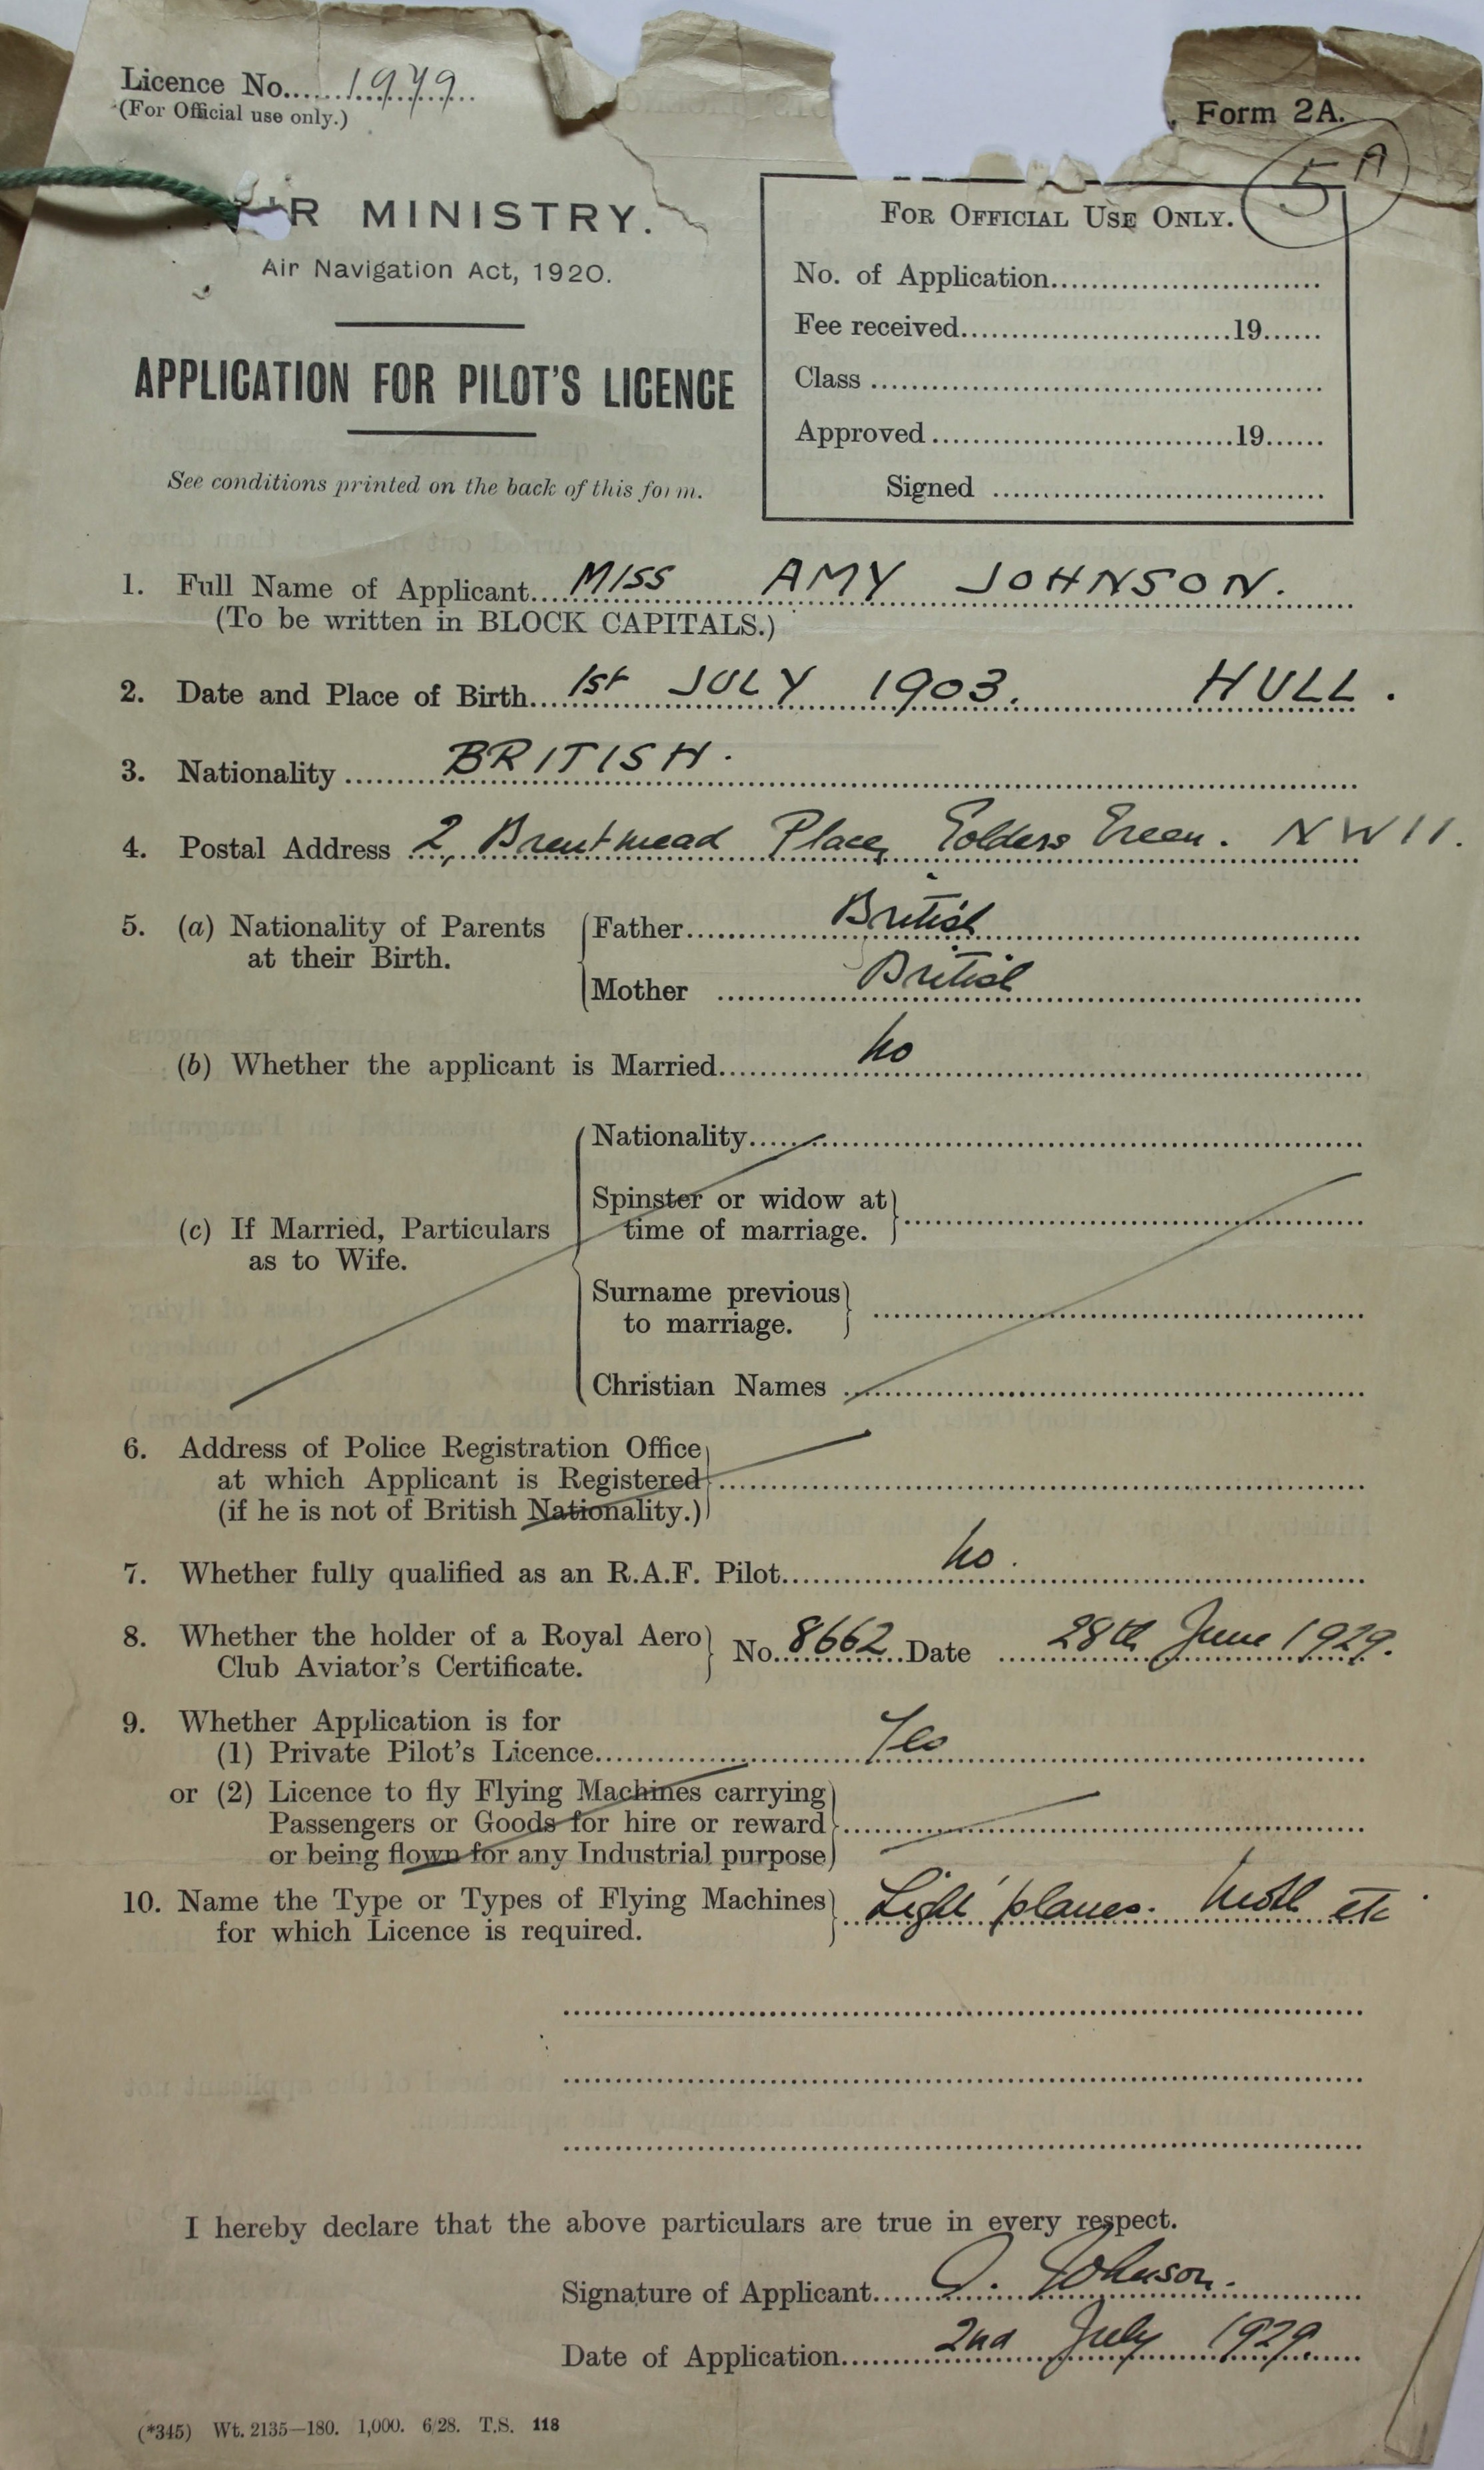 Licence No. 1979
(For Official use only.)
Form 2A.
5A
AIR MINISTRY.
Air Navigation Act, 1920.
APPLICATION FOR PILOT'S LICENCE
See conditions printed on the back of this form.
FOR OFFICIAL USE ONLY.
No. of Application
Fee received 19
Class
Approved 19
Signed
1. Full Name of Applicant MISS AMY JOHNSON.
(To be written in BLOCK CAPITALS.)
2. Date and Place of Birth 1st JULY 1903. HULL.
3. Nationality BRITISH.
4. Postal Address 2, Brentmead Place, Golders Green. NW11.
5. (a) Nationality of Parents Father British
at their Birth.
Mother British
(b) Whether the applicant is Married no
Nationality
Spinster or widow at
time of marriage.
(c) If Married, Particulars
as to Wife.
Surname previous
to marriage.
Christian Names
6. Address of Police Registration Office
at which Applicant is Registered
(if he is not of British Nationality.)
7. Whether fully qualified as an R.A.F. Pilot no.
8. Whether the holder of a Royal Aero No. 8662 Date 28th June 1929.
Club Aviator's Certificate.
9. Whether Application is for
(1) Private Pilot's Licence Yes
or (2) Licence to fly Flying Machines carrying
Passengers or Goods for hire or reward
or being flown for any Industrial purpose
10. Name the Type or Types of Flying Machines Light planes. Moth etc
for which Licence is required.
I hereby declare that the above particulars are true in every respect.
Signature of Applicant A. Johnson.
Date of Application 2nd July 1929.
(*345) Wt. 2135—180. 1,000. 6/28. T.S. 118